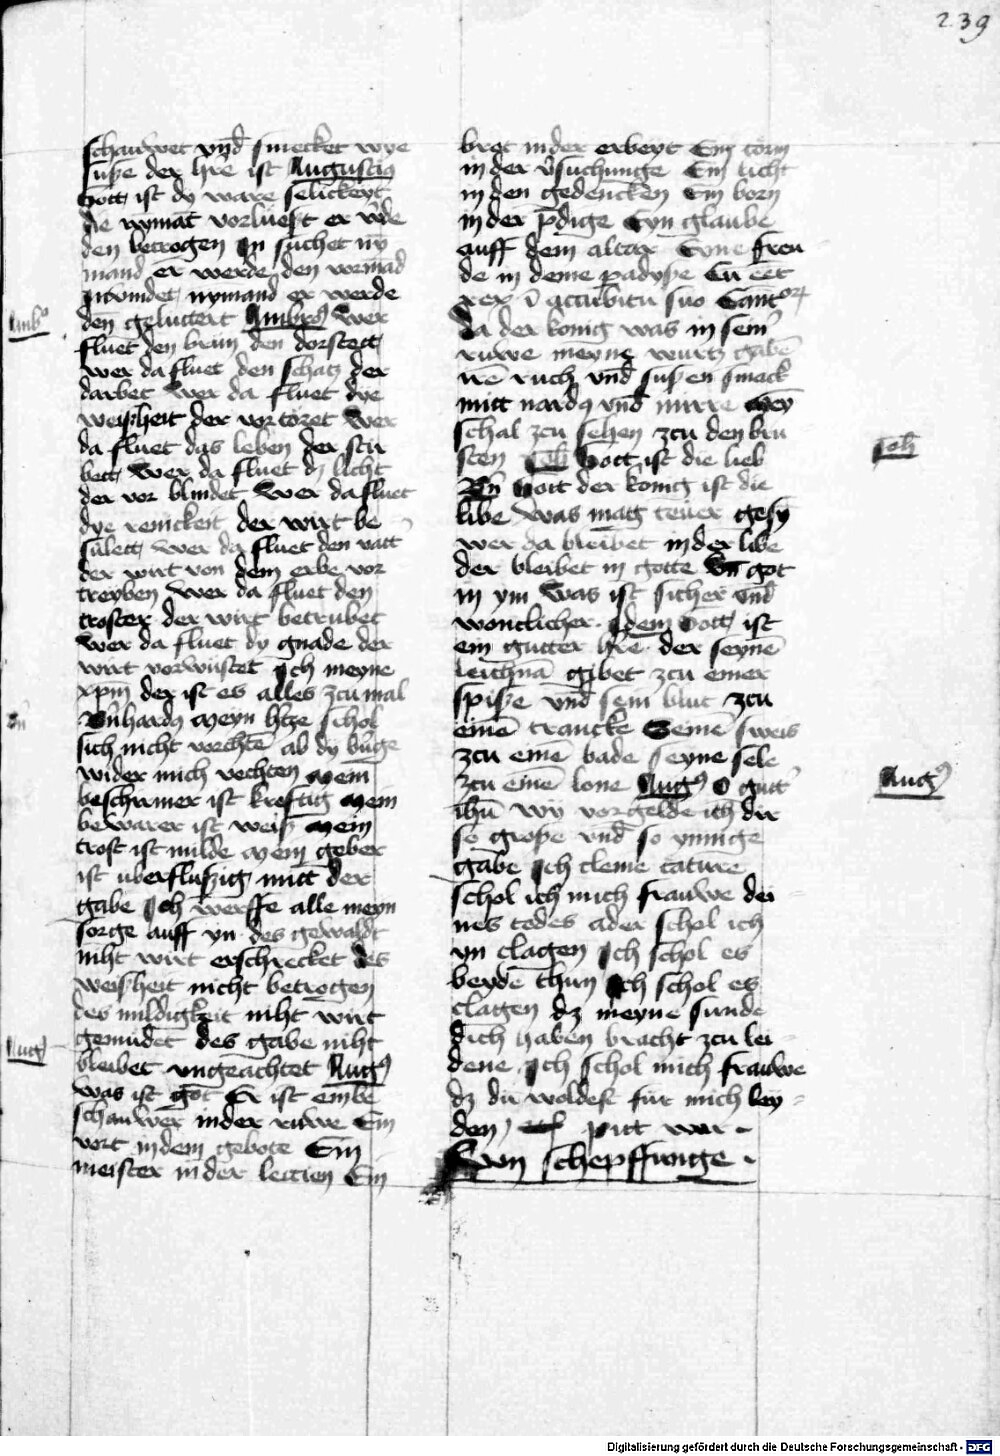 239
schauwet vnd smecket wye
suße der hre ist Augustiũ
Gott ist dy ware selickeyt
die nymāt vorlueſt er w̄de
den betrogen In suchet ny
mand er werde den vormād
Ambꝰ
Invindet nymand er werde
den geluttert Ambrꝰ Wer
fluet den brun den dorstett
wer da fluet den schatz der
darbet Wer da fluet dye
weißheit der vortoret Wer
da fluet das leben der stir
bett Wer da fluet dz licht
der vor blindet Wer da fluet
dye reinickeit der wirt be
sulett Wer da fluet den vatt
der wirt von dem erbe vor
treyben Wer da fluet den
troster der wirt betrubet
Wer da fluet dy gnade der
wirt vorwustet Ich meyne
xpm der ist es alles zcu mal
Bn̄
Bn̄hardꝰ Meyn htze schol
sich nicht vorchtē ab dy burge
wider mich vechten Mein
beschirmer ist kreftig Mein
bewarer ist weiß Mein
trost ist milde Mein geber
ist uberflußig mitt der
gabe Ich werffe alle meyn
sorge auff yn des gewaldt
niht wirt erschrecket des
weißheit nicht betrogen
des mildigkeit niht wirt
gemudet des gabe niht
Augꝰ
bleibet vngeachtet Augꝰ
was ist got Er ist ein be
schauwer in der ruwe Ein
vort in dem gebote Ein
meister in der lectien Ein
brot in der erbeyt Ein torm
in der v̄suchunge Ein licht
in den gedencken Ein born
in der p̄dige Eyn glaube
auff dem altar Eyne freu
de in deme padyße Cū eēt
rex ī accubitu suo Cantor̄
Da der konig was in seim
ruwe meyne wurtz gabē
irē ruch vnd sußen smeck
mitt nardꝰ vnd mirre Mey
schal zcu sehen zcu den bru
Joh
sten Joh Gott ist die lieb
Bn̄ Gott der konig ist die
libe Was mag teuer gesy
wer da bleibet in der libe
der bleibet in gotte Vn̄ got
in ym Was ist sicher vnd
wontlicher Idem Gott ist
ein gutter hre der seynē
leichnā gibet zcu einer
spiße vnd sein blut zcu
einē trancke Seinē sweis
zcu einē bade seyne sele
Augꝰ
zcu einē lone Augꝰ O gutt
ihū wy vorgelde ich dir
so große vnd so ynnige
gabe Ich cleine caturē
schol ich mich frauwe dei
nes todes ader schol ich
yn clagen Ich schol es
beyde thun Ich schol es
clagen dz meyne sunde
dich haben bracht zcu lei
dene Ich schol mich frauwe
dz du woldest fur mich ley
den pitt wir
Eyn schepffunge
Digitalisierung gefördert durch die Deutsche Forschungsgemeinschaft - DFG